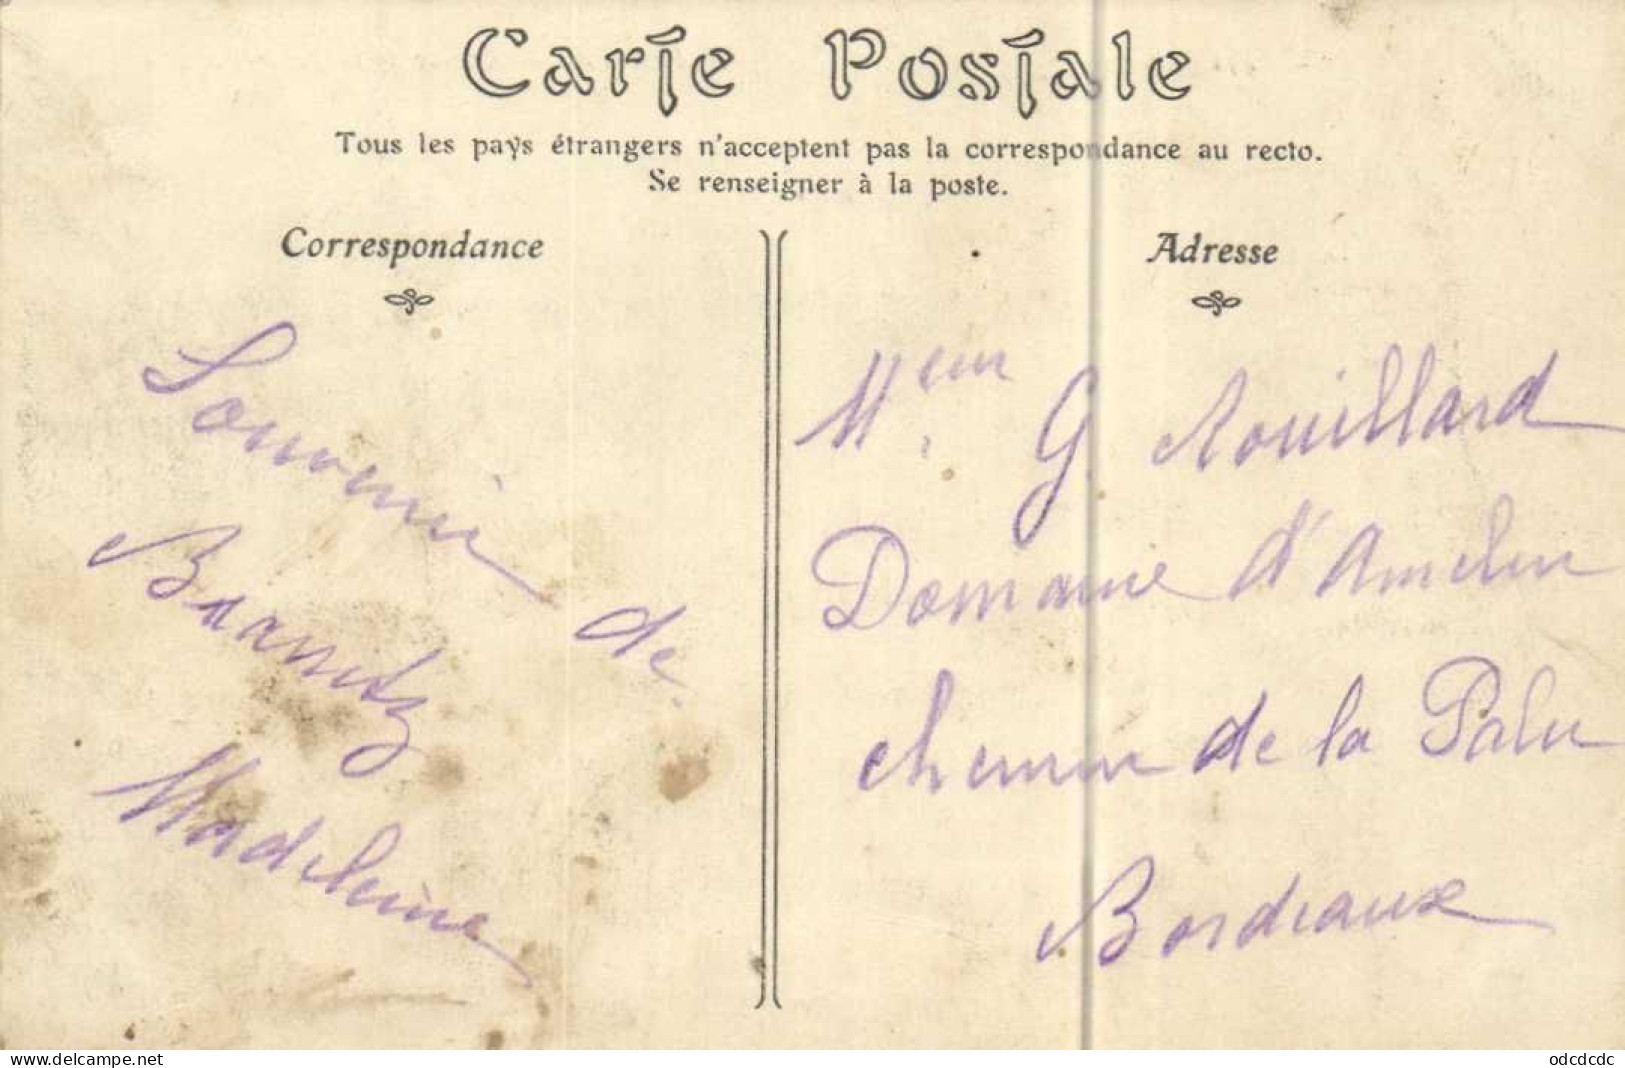 Carte Postale
Tous les pays étrangers n'acceptent pas la correspondance au recto.
Se renseigner à la poste.
Correspondance
Souvenir de
Biarritz
Madeleine
Adresse
Meur G. Rouillard
Domaine d'
chemin de la Palu
Bordeaux
www.delcampe.net
odcdcdc